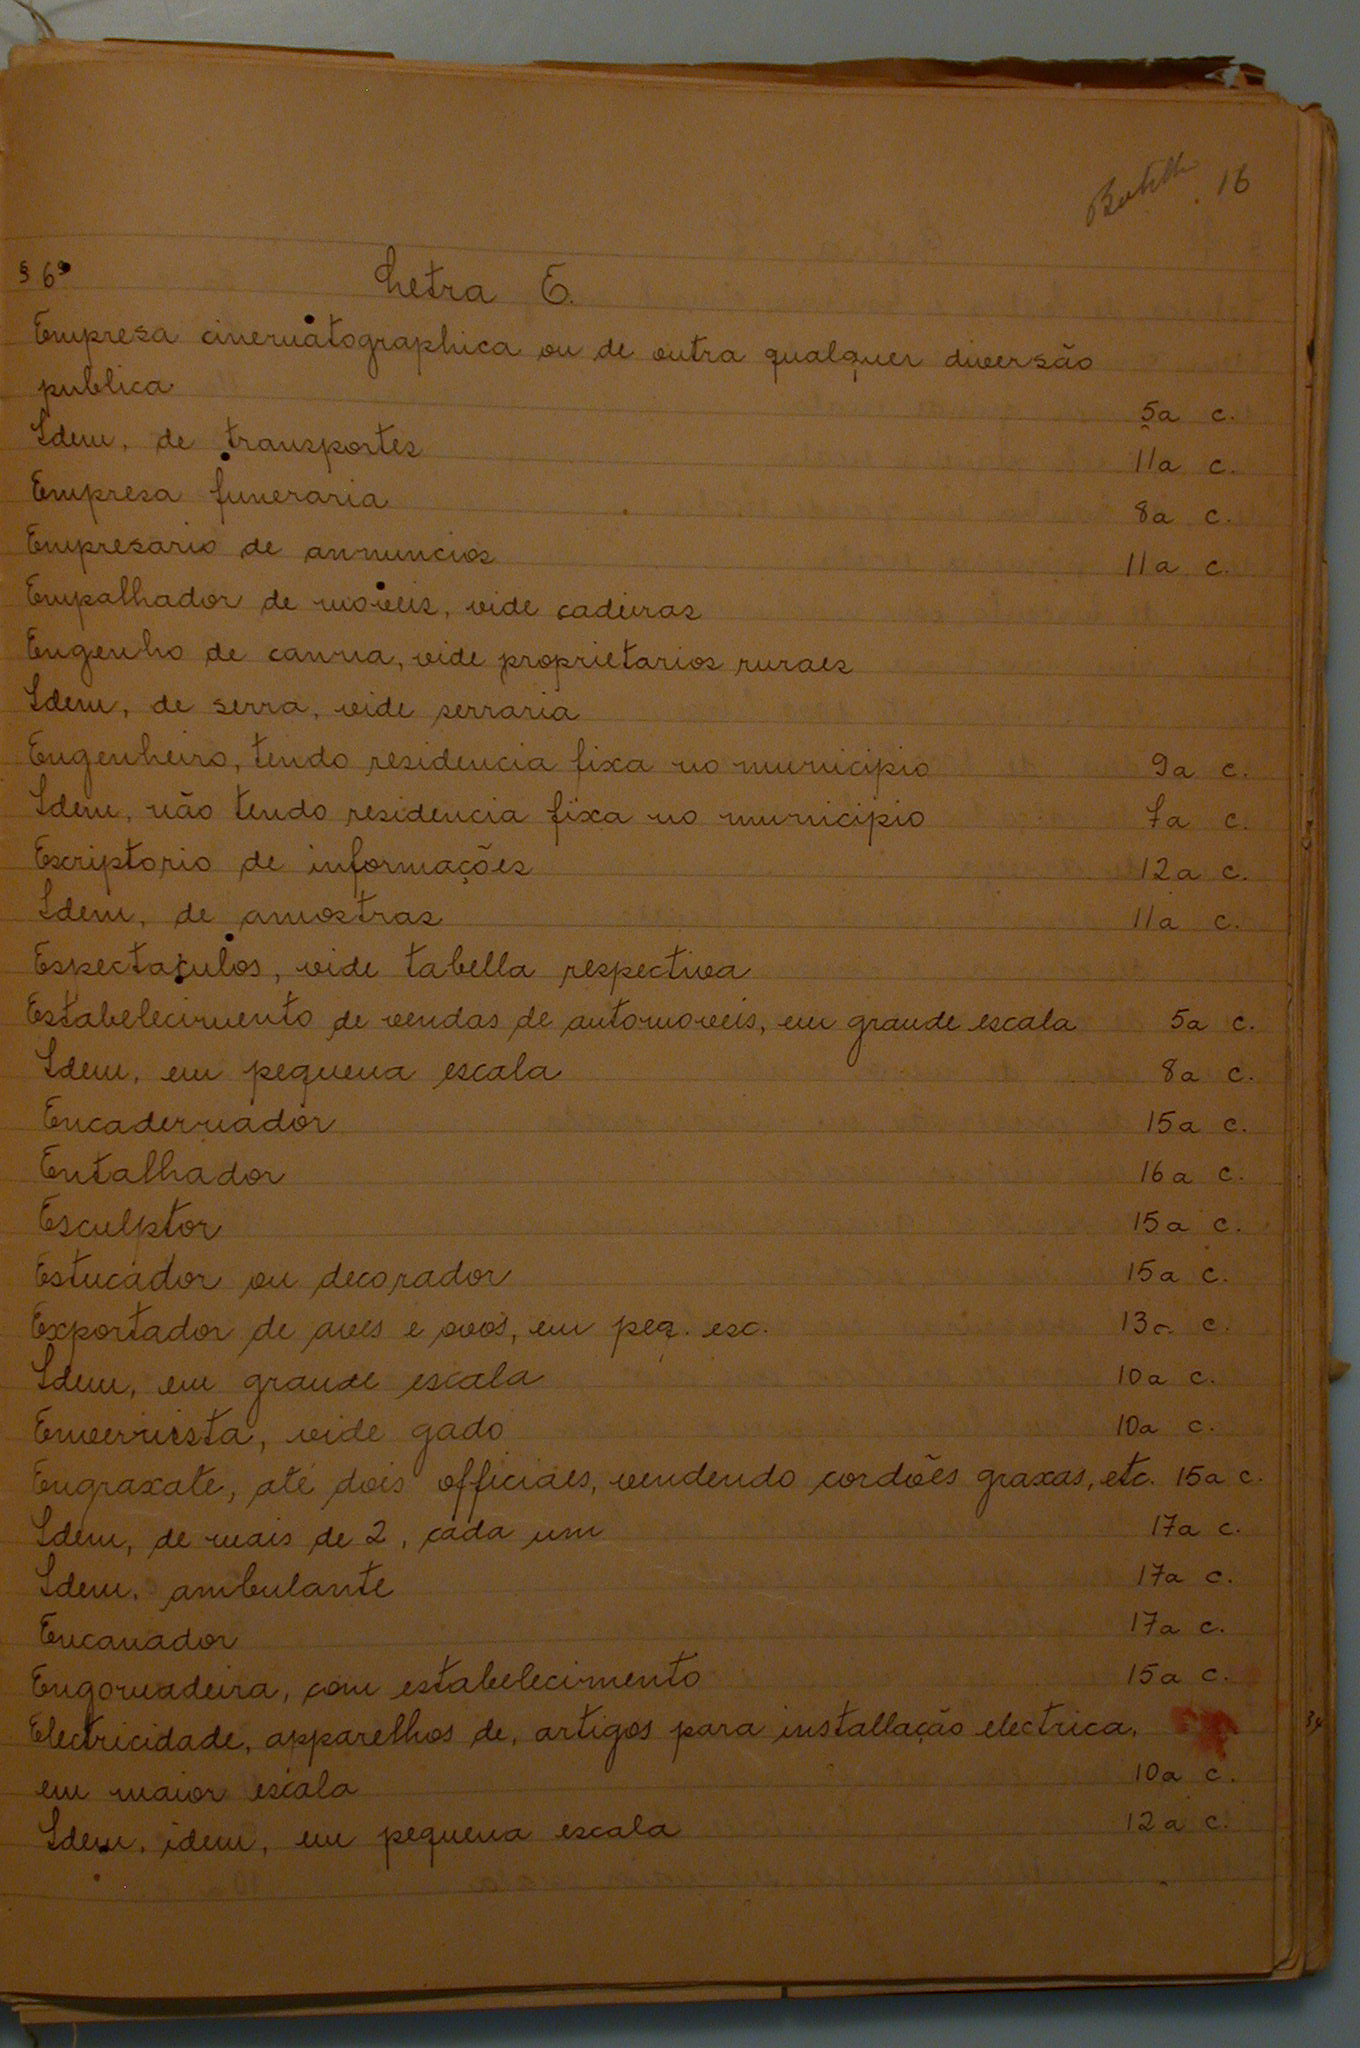 16
§ 6º Letra E.
Empresa cinematographica ou de outra qualquer diversão
publica 5a c.
Idem, de transportes 11a c.
Empresa funeraria 8a c.
Empresario de annuncios 11a c.
Empalhador de moveis, vide cadeiras
Engenho de canna, vide proprietarios ruraes
Idem, de serra, vide serraria
Engenheiro, tendo residencia fixa no municipio 9a c.
Idem, não tendo residencia fixa no municipio 7a c.
Escriptorio de informações 12a c.
Idem, de amostras 11a c.
Espectaculos, vide tabella respectiva
Estabelecimento de vendas de automoveis, em grande escala 5a c.
Idem, em pequena escala 8a c.
Encadernador 15a c.
Entalhador 16a c.
Esculptor 15a c.
Estucador ou decorador 15a c.
Exportador de aves e ovos, em peq. esc. 13a c.
Idem, em grande escala 10a c.
Envernista, vide gado 10a c.
Engraxate, até dois officiaes, vendendo cordões graxas, etc. 15a c.
Idem, de mais de 2, cada um 17a c.
Idem, ambulante 17a c.
Encanador 17a c.
Engomadeira, com estabelecimento 15a c.
Electricidade, apparelhos de, artigos para installação electrica,
em maior escala 10a c.
Idem, idem, em pequena escala 12a c.